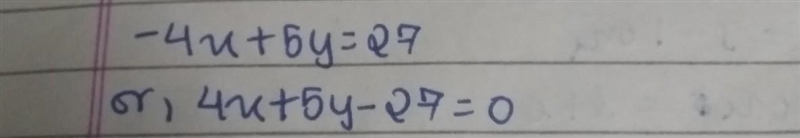 -4x+5y=27
or, 4x+5y-27=0